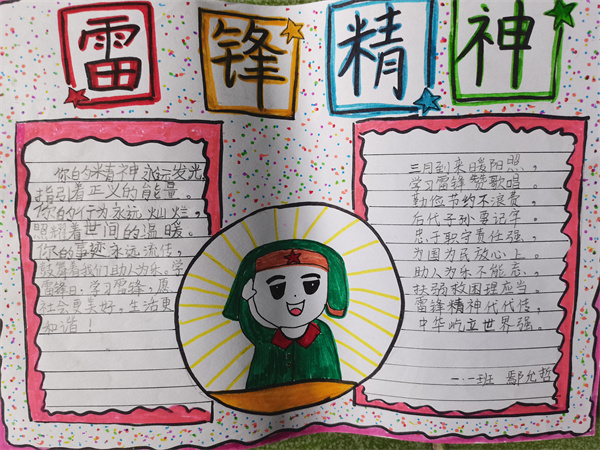 雷锋精神
你的精神永远发光，
指引着正义的能量。
你的行为永远灿烂，
照耀着世间的温暖。
你的事迹永远流传，
鼓舞着我们助人为乐。学
雷锋日，学习雷锋，愿
社会更美好，生活更
和谐！
三月到来暖阳照，
学习雷锋赞歌唱。
勤俭节约不浪费，
后代子孙要记牢。
忠于职守责任强，
为国为民放心上。
助人为乐不能忘，
扶弱救困理应当。
雷锋精神代代传，
中华屹立世界强。
一.一班 鄢允哲